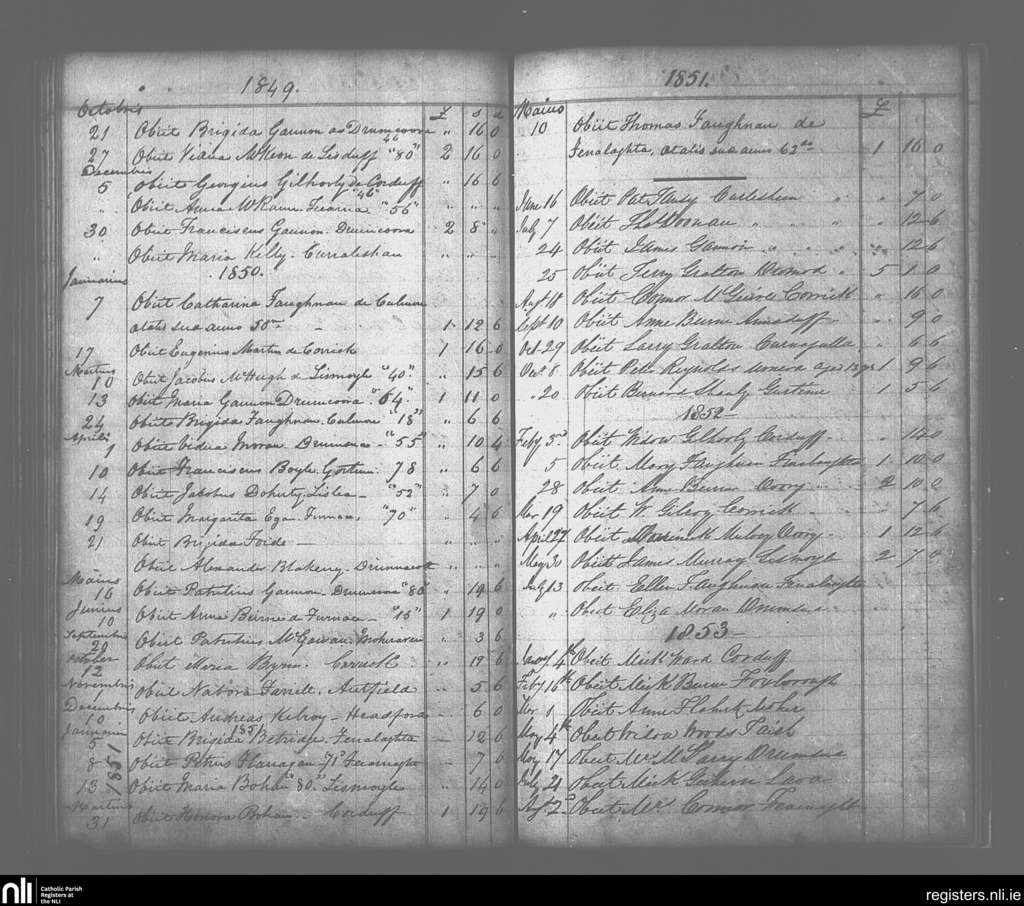 1849.
Octobris £ s d
21 Obiit Brigida Gannon de Drumcoora " 16 0
46
27 Obiit Vidua McKeon de Lisduff "80" 2 16 0
Decembris
5 Obiit Georgius Gilhooly de Corduff " 16 6
"46"
" Obiit Anna "56" " " "
30 Obiit Franciscus Gannon Drumcoora 2 8 "
" Obiit Maria Kelly. Curraleehan " " "
1850.
Januarius
7 Obiit Catharina Faughnan de Culmore
ætatis suæ annis 50 1 12 6
17 Obiit Eugenius Martin de Corrick 1 16 0
Martius
10 Obiit Jacobus McHugh de Lismoyle "40" " 15 6
13 Obiit Maria Gannon Drumcoora "64" 1 11 0
24 Obiit Brigida Faughnan Culmore "18" " 6 6
Aprilis
1 Obiit Vidua Moran Drumona "55" " 10 4
10 Obiit Franciscus Boyle Gortinee 78 " 6 6
14 Obiit Jacobus Doherty Lislea "52" " 7 0
19 Obiit Margarita Egan Furnace "70" " 4 6
21 Obiit Brigida Foide " " "
Obiit Alexander Blakeny. " " "
Maius
16 Obiit Patritius Gannon Drumcoora "80" " 14 6
Junius
10 Obiit Anna Beirne de Furnace "15" 1 19 0
Septembris
29 Obiit Patritius McGowan " 3 6
October
12 Obiit Maria Byrne. Corrick " 19 6
Novembris
Obiit Nabora Farrell. Aughfield " 5 6
Decembris
10 Obiit Andreas Kilroy - Headford " 6 0
Januarii 1851
5 Obiit Brigida Betridge. Fenalaghta 12 6
8 1851 Obiit Petrus Flanagan 71 7 0
13 Obiit Maria Bohan "80" Lismoyle " 14 0
Martius
31 Obiit Honora Bohan Corduff 1 19 6
1851.
Maius £
10 Obiit Thomas Faughnan de
Fenalaghta, ætatis suæ annis 62 1 16 0
June 16 Obiit Pat " 7 0
July 7 Obiit Thos Noonan " 12 6
24 Obiit James Gannon " 12 6
25 Obiit Terry Gralton Dromod 5 1 0
Augt 18 Obiit Connor McGuire Corrick " 16 0
Sept 10 Obiit Anne Burn Annaduff 9 0
Oct 29 Obiit Larry Gralton 6 6
8 Obiit Peter Reynolds aged 18 yrs 1 9 6
" 20 Obiit Bernard Shanly Gortinee 1 5 6
1852
Feby 3rd Obiit Widow Gilhooly Corduff 14 0
5 Obiit Mary Faughnan Finalaghta 1 10 0
28 Obiit Ann Burn Ovory 2 10 0
Mar 19 Obiit W Gilroy Corrick 7 6
April 27 Obiit Dominick Mulvey Ovory 1 12 6
May 30 Obiit James Murray Lismoyle 2 7 0
July 13 Obiit Ellen Faughnan Finalaghta
" Obiit Eliza Moran Drumona
1853
Jany 4th Obiit Mick Ward Corduff
Feby 16th Obiit Mick Burn
Mar 1 Obiit Anne Moher
May 4th Obiit Widow Woods
May 17 Obiit Drumona
July 21 Obiit Mick
Augt 2 Obiit Mrs Connor
nli Catholic Parish
Registers at
the NLI
registers.nli.ie